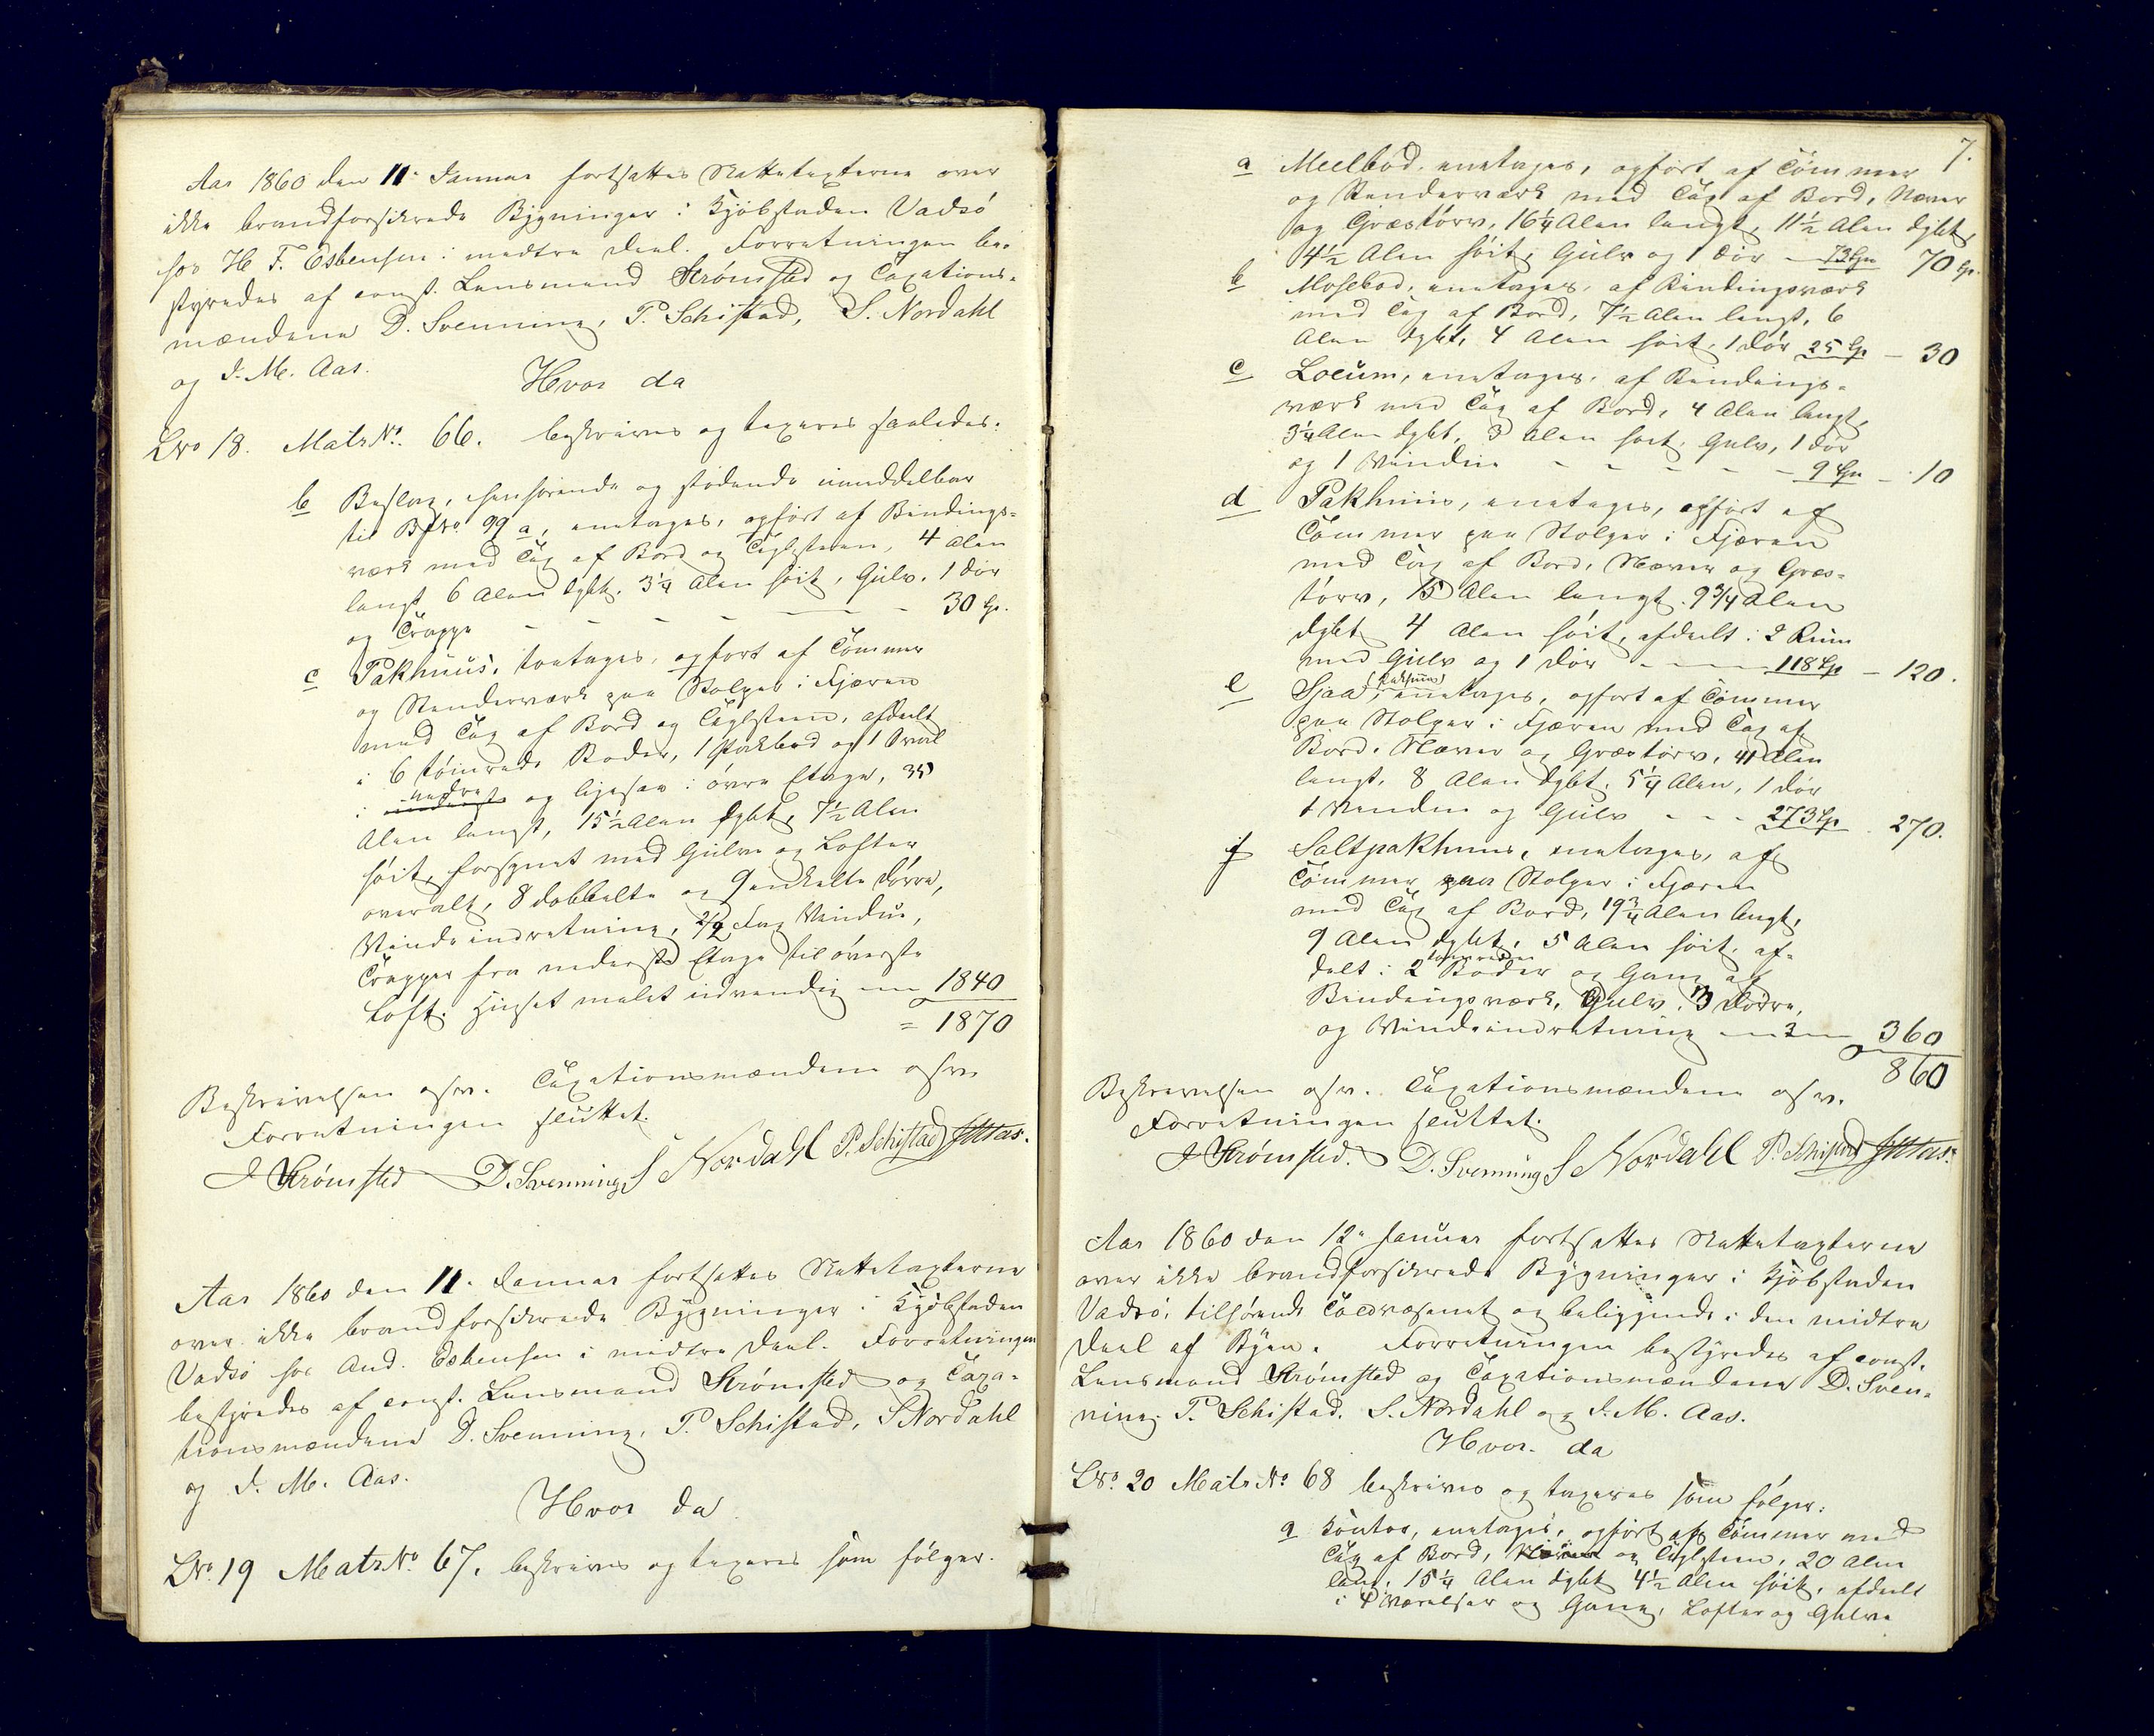 Aar 1860 den 11. Januar fortsattes Nattetaxterne over
ikke brandforsikrede Bygninger i Kjöbstaden Vadsö
hos H. F. Esbensen i midtre Deel. Forretningen be-
styredes af const. Lensmand Strømsted og Taxations-
mændene D. Svenning, P. Schistad, S. Nordahl
og J. M. Aas.
Hvor da
LNo 18. Matr. No. 66. beskrives og taxeres saaledes.
b Beslag, henhörende og stödende umiddelbar
til BfNo. 99 a, eenetages, opfört af Bindings-
værk med Tag af Bord og Teglsteen, 4 Alen
langt 6 Alen dybt, 3 1/4 Alen höit, Gulv, 1 Dör
og Trappe - - - - - 30 Sp.
c Pakhuus, toetages, opfort af Tömmer
og Stenderværk paa Stolper i Fjæren
med Tag af Bord og Teglsteen, afdeelt
i 6 tömrede Boder, 1 Pakbod og 1 Sval
i nedre og ligesaa i övre Etage, 35
Alen langt, 15 1/2 Alen dybt, 7 1/2 Alen
höit, forsynet med Gulve og Lofter
overalt, 8 dobbelte og 9 enkelte Dörre,
Vindeindretning, 2/2 Fag Vindue,
Trapper fra nederste Etage til överste
Loft. Huset malet udvendig 1840
= 1870
Beskrivelsen osv. Taxationsmændene osv.
Forretningen sluttet.
J Strømsted D. Svenning S Nordahl P. Schistad JMAas.
Aar 1860 den 11. Januar fortsattes Nattetaxterne
over ikke brandforsikrede Bygninger i Kjöbstaden
Vadsö hos And. Esbensen i midtre Deel. Forretningen
bestyredes af const. Lensmand Strømsted og Taxa-
tionsmændene D. Svenning, P. Schistad, S Nordahl
og J. M. Aas.
Hvor da
LNo. 19 Matr No. 67. beskrives og taxeres som fölger.
7.
a Meelbod, eenetages, opfört af Tömmer
og Stenderværk med Tag af Bord, Næver
og Græstörv, 16 1/4 Alen langt, 11 1/2 Alen dybt,
4 1/2 Alen höit, Gulv og 1 Dör - 73 Sp 70 Sp.
b Mosebod, eenetages, af Bindingsværk
med Tag af Bord, 7 1/2 Alen langt, 6
Alen dybt, 4 Alen höit, 1 Dör 25 Sp - 30
c Locum, eenetages, af Bindings-
værk med Tag af Bord, 4 Alen langt,
3 1/4 Alen dybt, 3 Alen höit, Gulv, 1 Dör
og 1 Vindue - - - - - 9 Sp - 10
d Pakhuus, eenetages, opfört af
Tömmer paa Stolper i Fjæren
med Tag af Bord, Næver og Græs-
törv, 15 Alen langt, 9 3/4 Alen
dybt 4 Alen höit, afdeelt i 2 Rum
med Gulv og 1 Dör - - - 118 Sp - 120.
e Sjaa (Pakhuus), eenetages, opfort af Tömmer
paa Stolper i Fjæren med Tag af
Bord, Næver og Græstörv, 41 Alen
langt, 8 Alen dybt, 5 1/4 Alen, 1 Dör
1 Vindue og Gulv - - - 273 Sp. 270.
f Saltpakhuus, eenetages, af
Tömmer paa Stolper i Fjæren
med Tag af Bord, 19 3/4 Alen langt,
9 Alen dybt, 5 Alen höit, af-
delt i 2 tömrede Boder og Gang af
Bindingsværk, Gulv, 3 Dörre,
og Vindeindretning 360
860
Beskrivelsen osv. Taxationsmændene osv.
Forretningen sluttet.
J Strømsted. D. Svenning S Nordahl P. Schistad JMAas.
Aar 1860 den 12. Januar fortsattes Nattetaxterne
over ikke brandforsikrede Bygninger i Kjöbstaden
Vadsö, tilhörende Toldvæsenet og beliggende i den midtre
Deel af Byen. Forretningen bestyredes af const.
Lensmand Strømsted og Taxationsmændene D. Sven-
ning, P. Schistad, S. Nordahl og J. M. Aas.
Hvor da
LNo. 20 Matr No. 68 beskrives og taxeres som fölger:
a Kontor, eenetages, opfört af Tömmer med
Tag af Bord, Næver og Teglsteen, 20 Alen
lang, 15 1/4 Alen dybt 4 1/2 Alen höit, afdeelt
i 4 Værelser og Gang, Lofter og Gulve